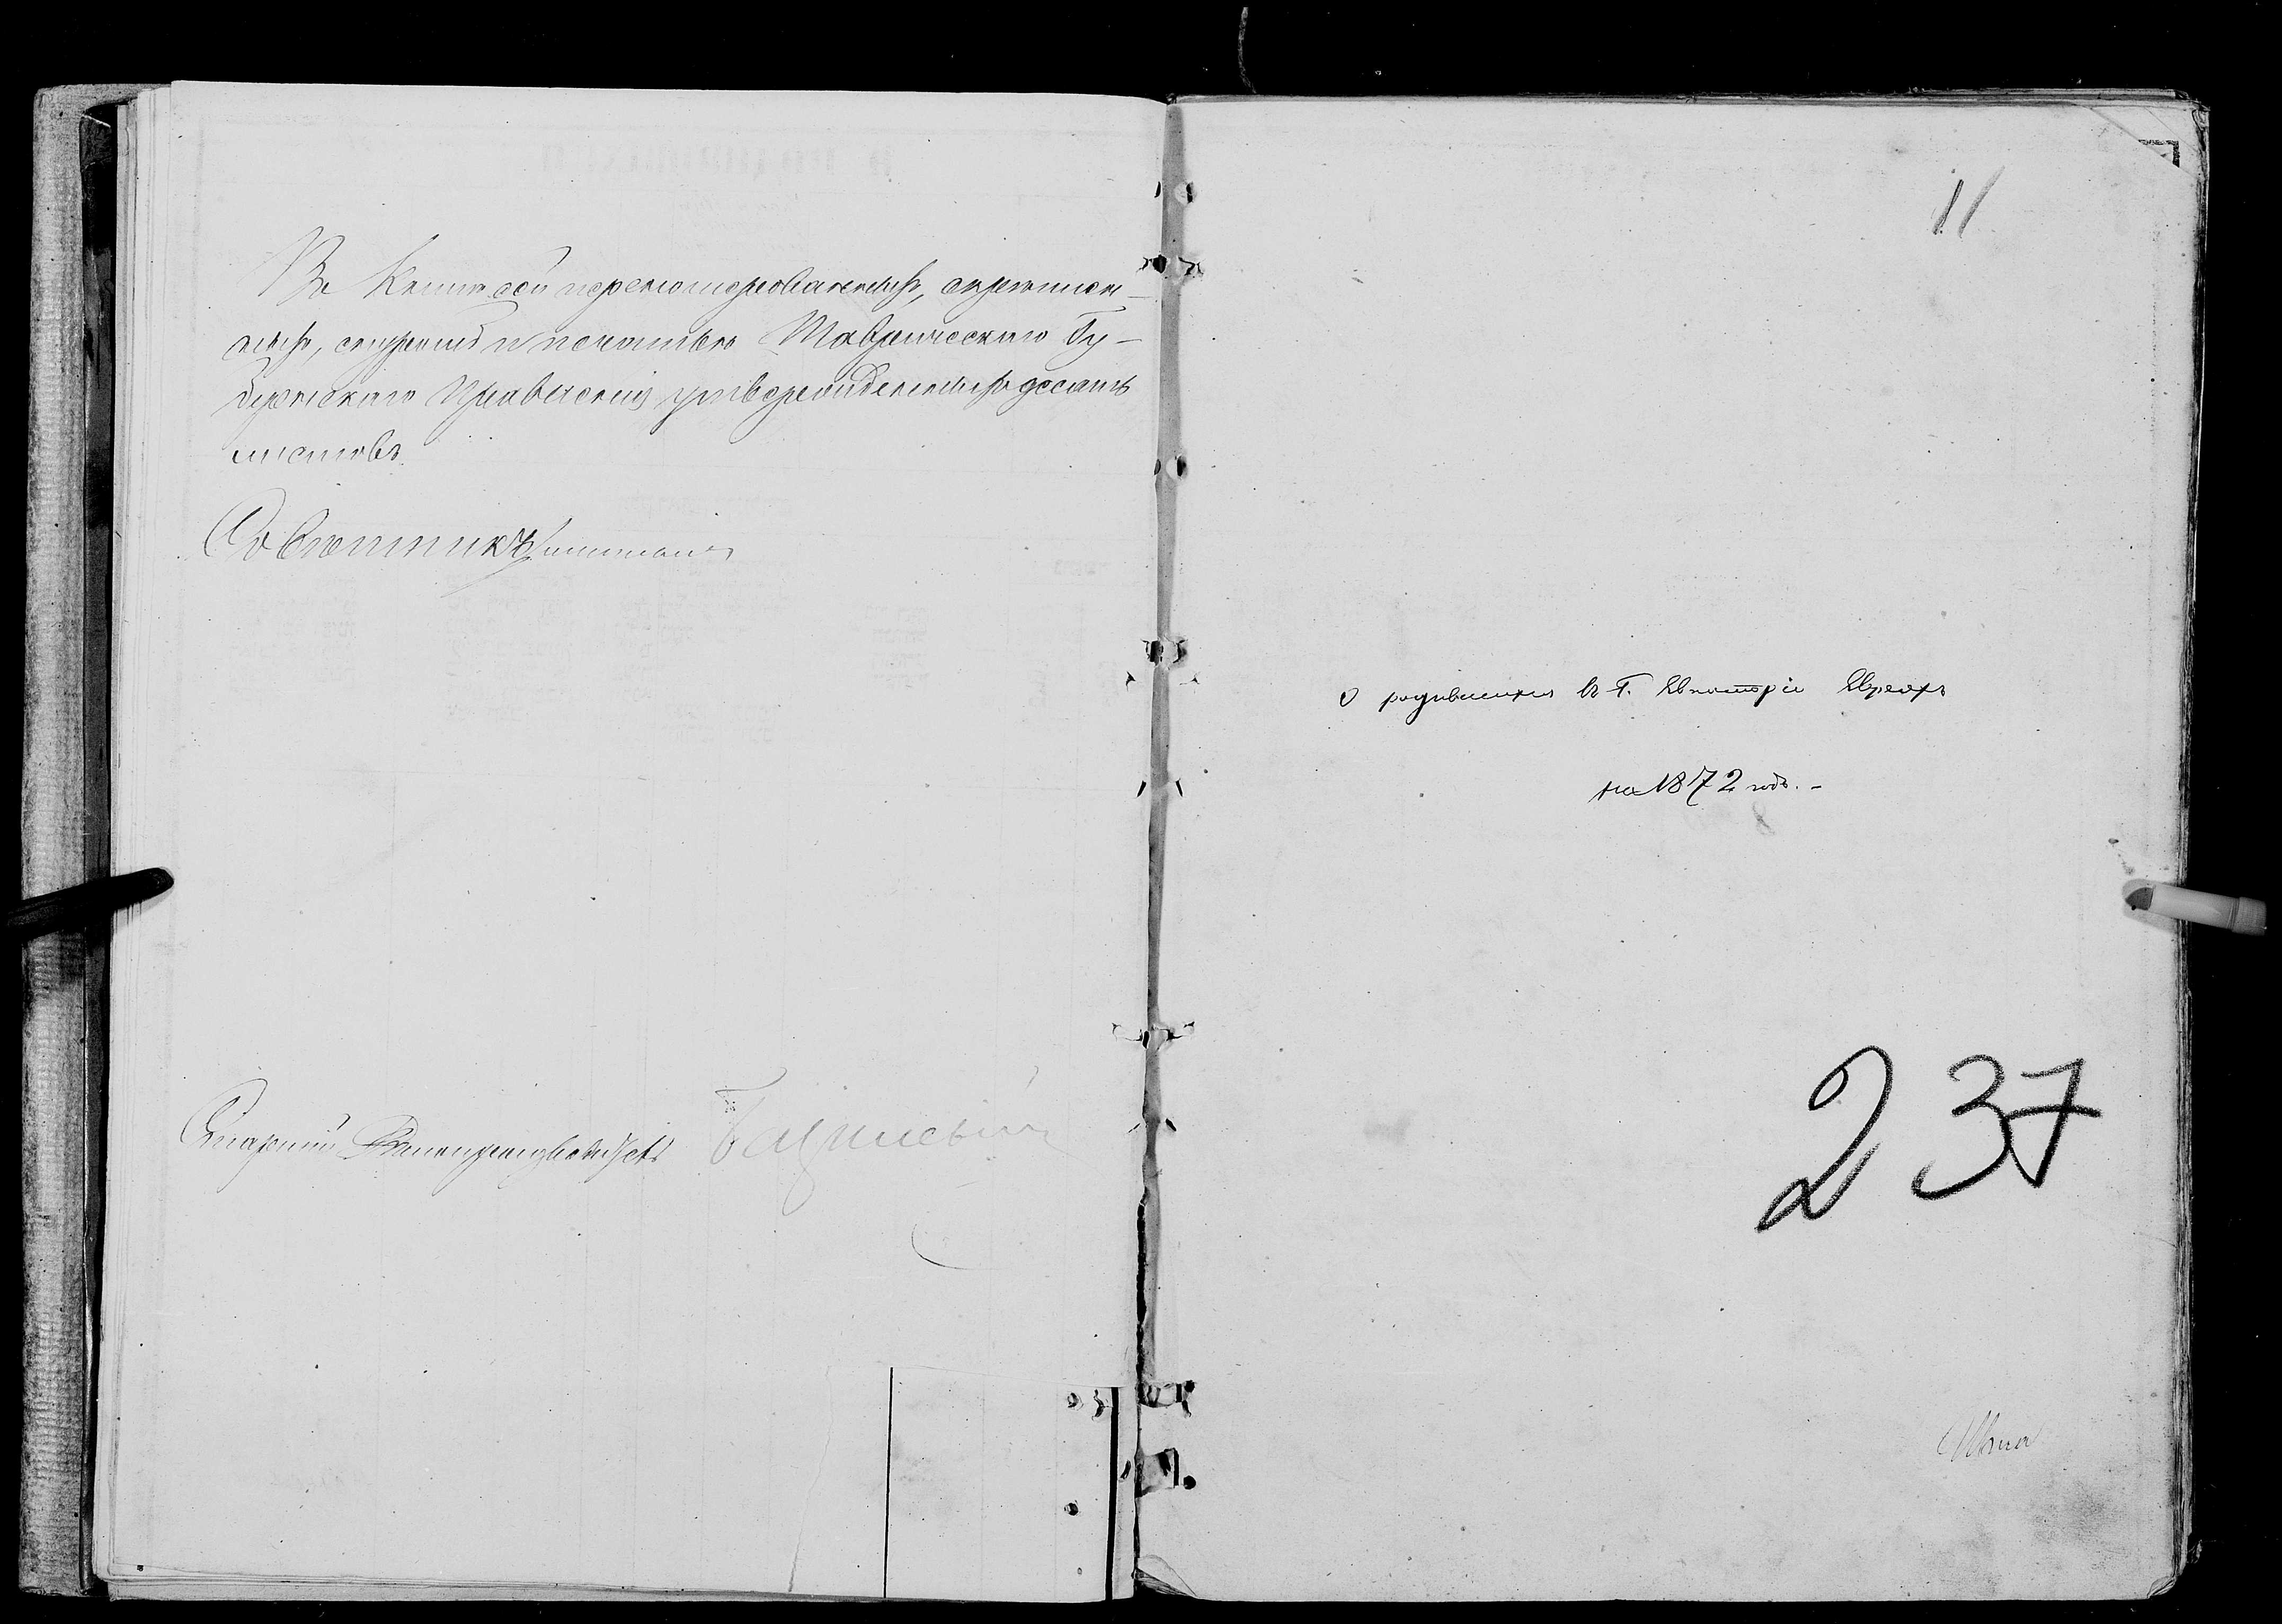 Въ Книгѣ сей перенумерованныхъ, скрѣплен-
ныхъ, скурпиѣ и печатью Таврическаго Гу-
бернскаго Правленія утвержденныхъ десять
листовъ.
Совѣтникъ
Старшій Дѣлопроизводитель
11
О родившихся въ г. Евпаторіи Евреяхъ
на 1872 годъ. -
237